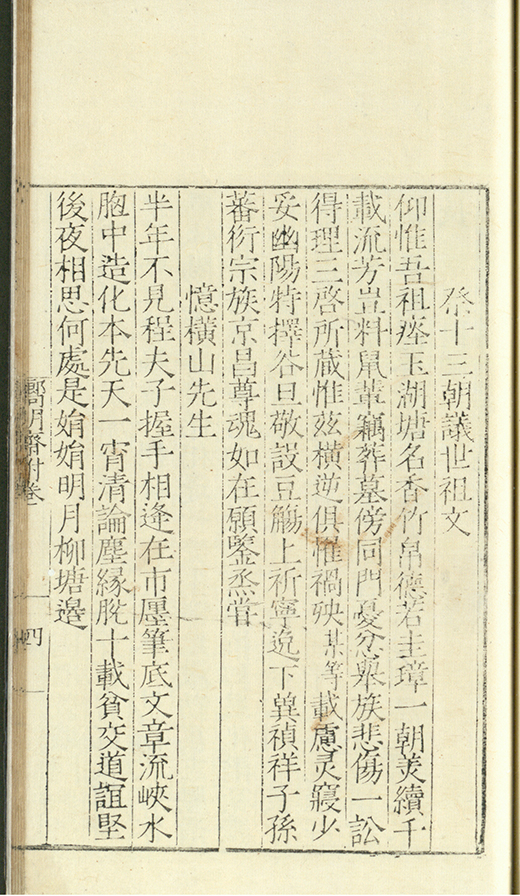 祭十三朝議世祖文
仰惟吾祖瘞玉湖塘名香竹帛德若圭璋一朝羙續千
載流芳豈料鼠輩竊葬墓傍同門憂忿舉族悲傷一訟
得理三啓所藏惟兹横逆俱惟禍殃某等載慮灵寢少
妥幽陽特擇谷旦敬設豆觴上祈寧逸下兾禎祥子孫
蕃衍宗族京昌尊魂如在願鑒烝甞
憶横山先生
半年不見程夫子握手相逢在市㕓筆底文章流峽水
胸中造化本先天一宵清論塵縁脱十載貧交道誼堅
後夜相思何處是娟娟明月柳塘邉
明齋附卷
四